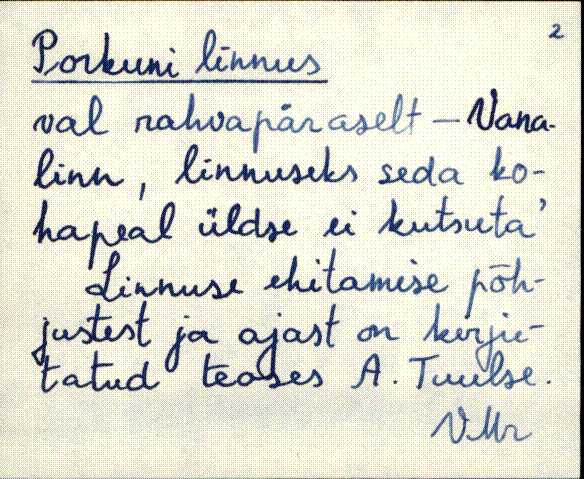 2
Porkuni linnus
val rahvapäraselt – Vana-
linn, linnuseks seda ko-
hapeal üldse ei kutsuta'
Linnuse ehitamise põh-
justest ja ajast on kirju-
tatud teoses A. Tuulse.
VMr